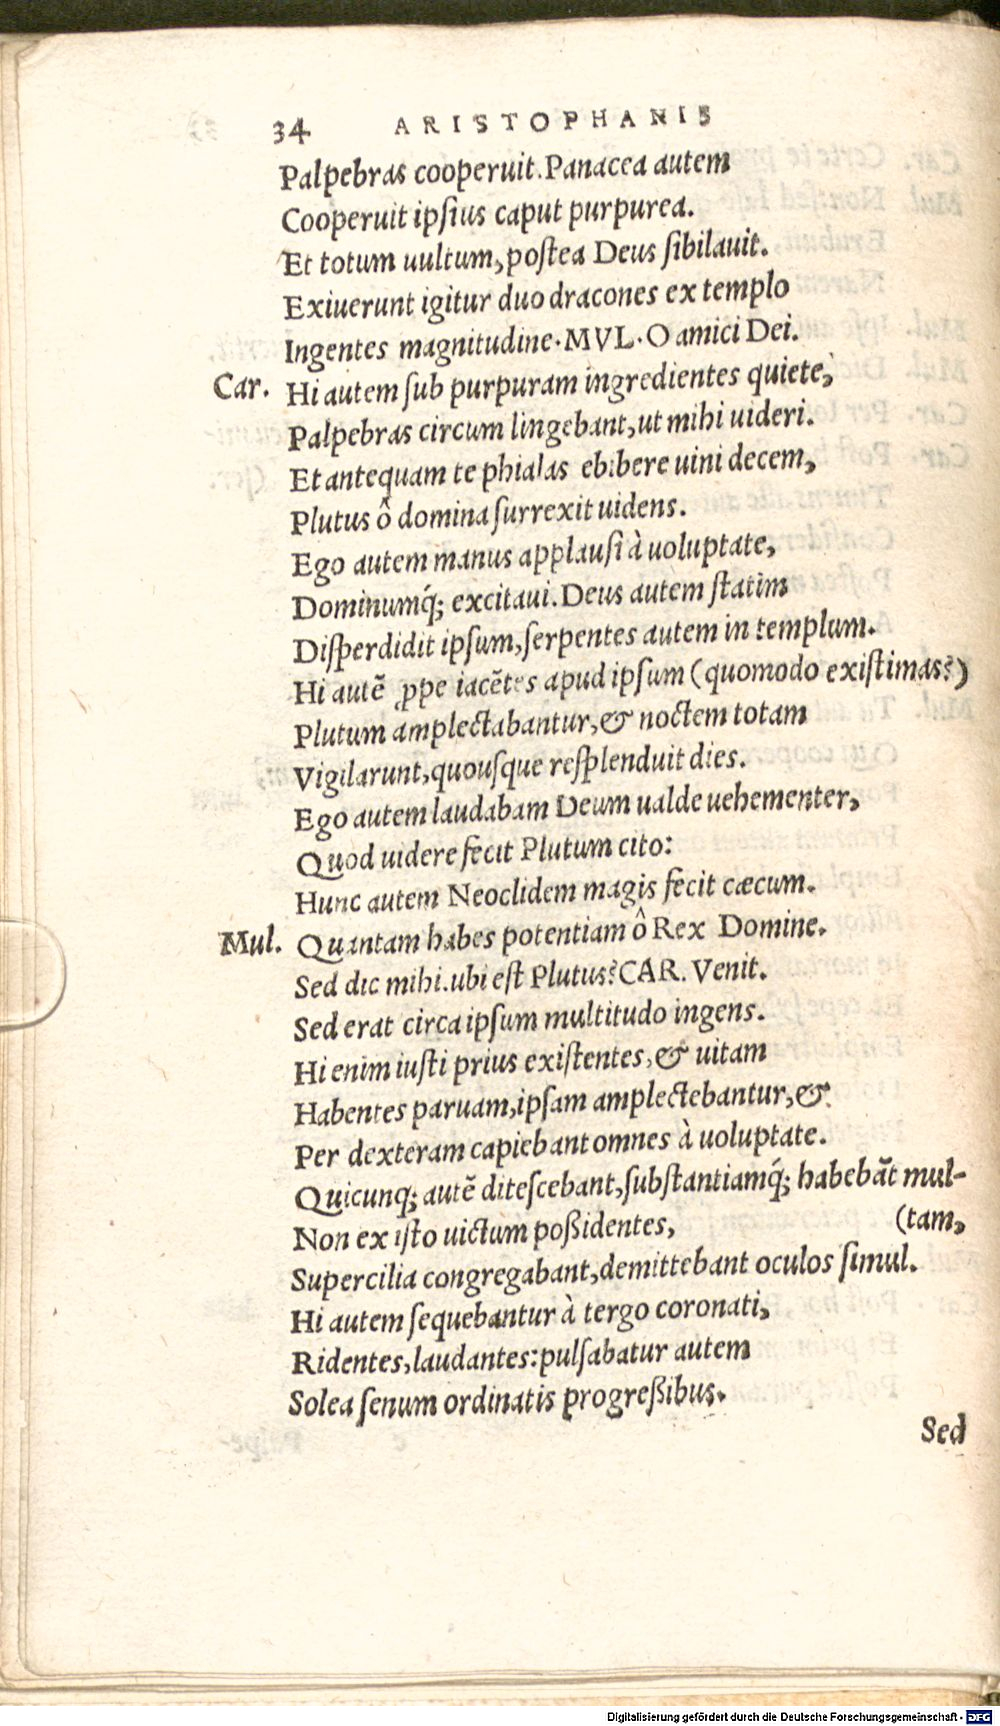 34 ARISTOPHANIS
Palpebras cooperuit. Panacea autem
Cooperuit ipſius caput purpurea.
Et totum uultum, poſtea Deus ſibilauit.
Exiuerunt igitur duo dracones ex templo
Ingentes magnitudine. MVL. O amici Dei.
Car. Hi autem ſub purpuram ingredientes quiete,
Palpebras circum lingebant, ut mihi uideri.
Et antequam te phialas ebibere uini decem,
Plutus ô domina ſurrexit uidens.
Ego autem manus applauſi à uoluptate,
Dominumq́; excitaui. Deus autem ſtatim
Diſperdidit ipſum, ſerpentes autem in templum.
Hi autē ꝓpe iacētes apud ipſum (quomodo exiſtimas?)
Plutum amplectabantur, & noctem totam
Vigilarunt, quouſque reſplenduit dies.
Ego autem laudabam Deum ualde uehementer,
Quod uidere fecit Plutum cito:
Hunc autem Neoclidem magis fecit cæcum.
Mul. Quantam habes potentiam ô Rex Domine.
Sed dic mihi. ubi eſt Plutus? CAR. Venit.
Sed erat circa ipſum multitudo ingens.
Hi enim iuſti prius exiſtentes, & uitam
Habentes paruam, ipſam amplectebantur, &
Per dexteram capiebant omnes à uoluptate.
Quicunq; autē diteſcebant, ſubſtantiamq́; habebāt mul-
Non ex iſto uictum poßidentes, (tam,
Supercilia congregabant, demittebant oculos ſimul.
Hi autem ſequebantur à tergo coronati,
Ridentes, laudantes: pulſabatur autem
Solea ſenum ordinatis progreßibus.
Sed
Digitalisierung gefördert durch die Deutsche Forschungsgemeinschaft - DFG